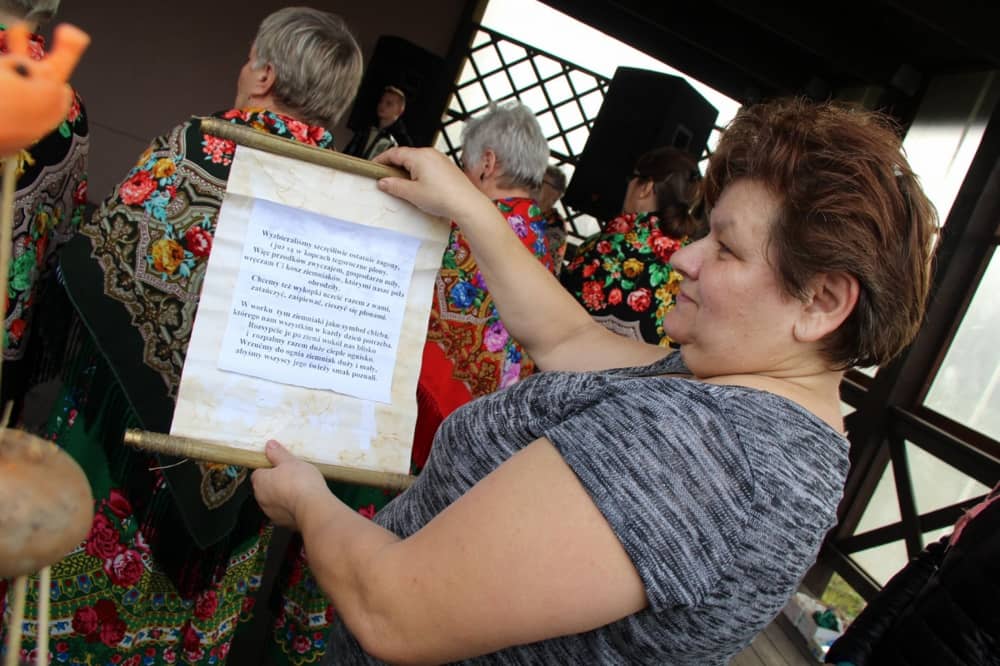 Wyzbieraliśmy szczęśliwie ostatnie zagony,
i już są w kopcach tegoroczne plony.
Więc przodków zwyczajem, gospodarzu miły,
wręczam Ci kosz ziemniaków, którymi nasze pola
obrodziły.
Chcemy też wykopki uczcić razem z wami,
zatańczyć, zaśpiewać, cieszyć się plonami.
W worku tym ziemniaki jako symbol chleba,
którego nam wszystkim w każdy dzień potrzeba.
Rozsypcie je po ziemi wokół nas blisko
rozpalmy razem duże ciepłe ognisko.
Wrzućmy do ognia ziemniak duży i mały,
abyśmy wszyscy jego świeży smak poznali.